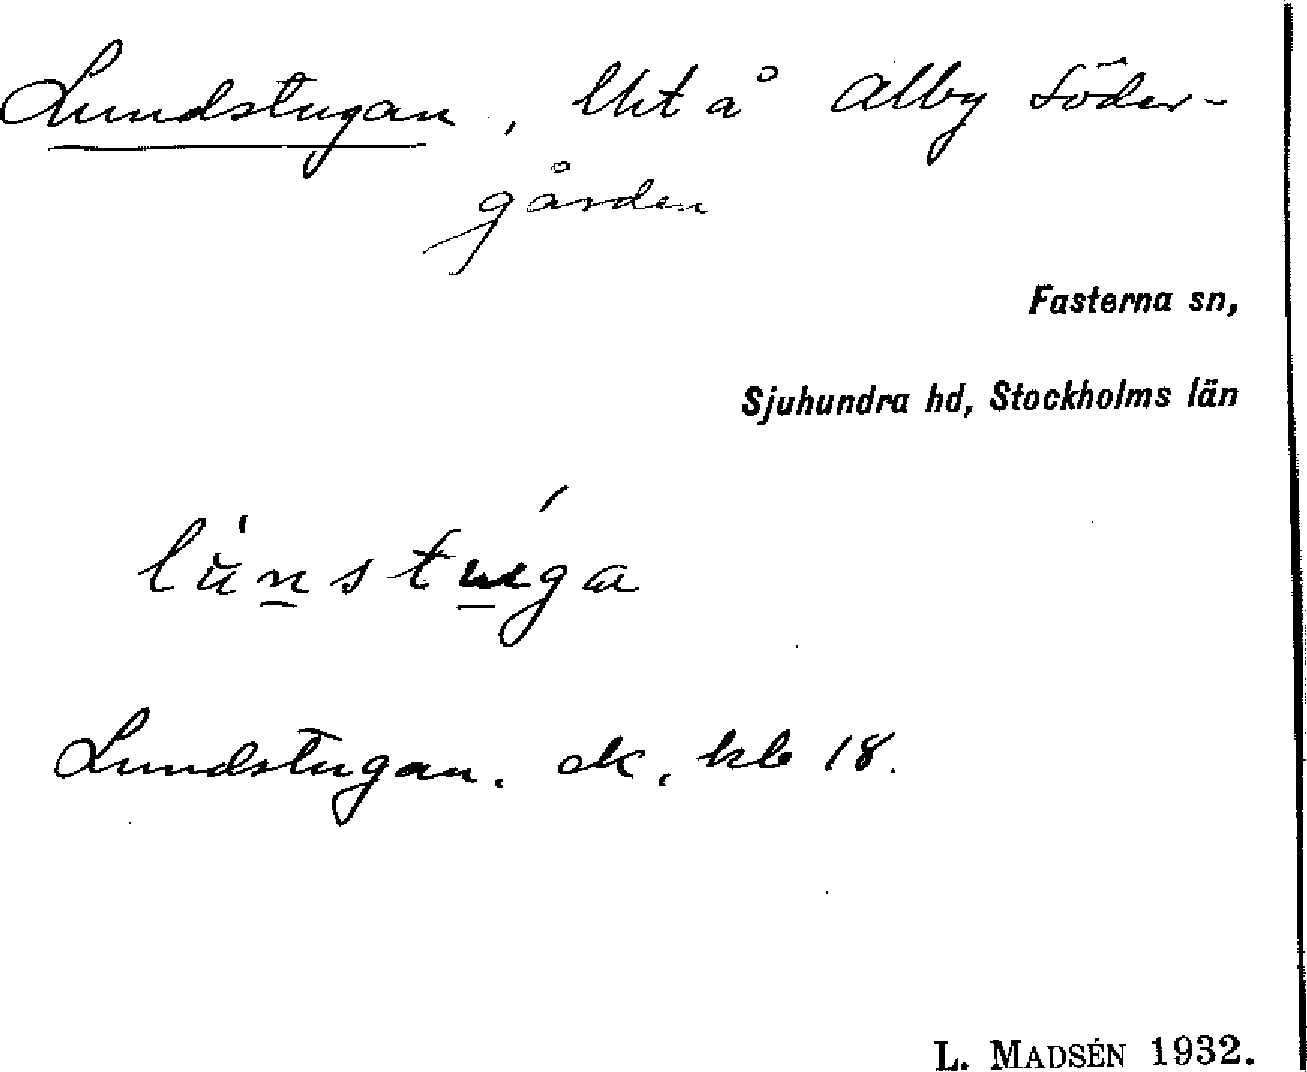 Lundstugan, lht å Alby Söder-
gården
Fasterna sn,
Sjuhundra hd, Stockholms län
lunstuga
Lundstugan. ek. kb 18.
L. MADSÉN 1932.